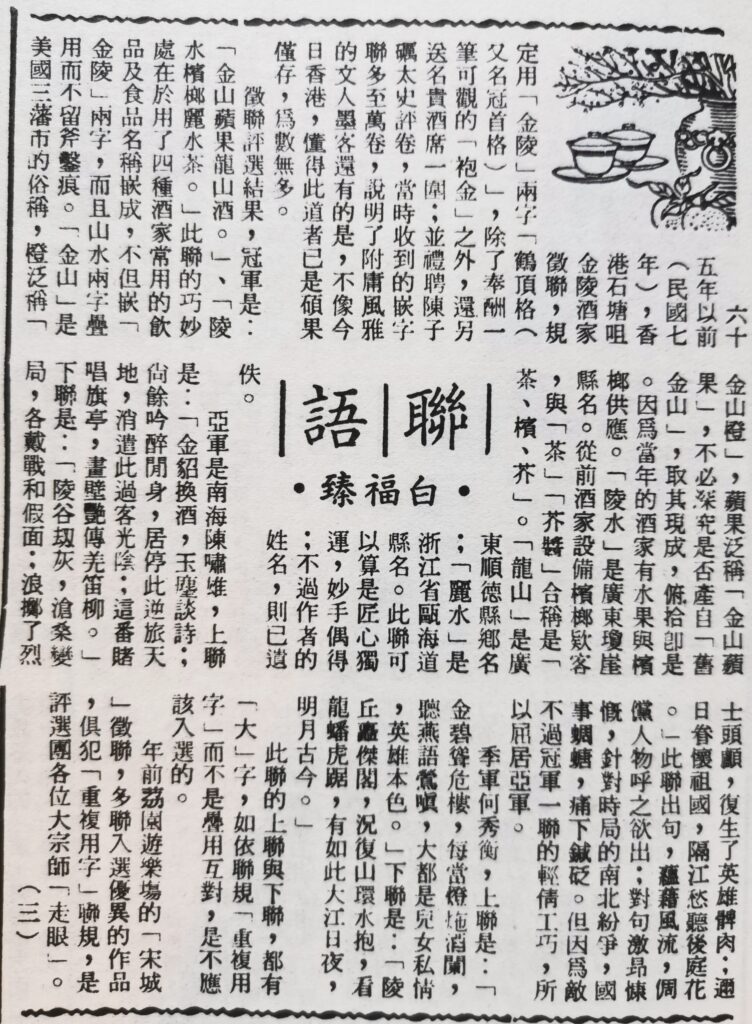 聯語
•白福臻•
六十
五年以前
（民國七
年），香
港石塘咀
金陵酒家
徵聯，規
定用「金陵」兩字「鶴頂格（
又名冠首格）」，除了奉酬一
筆可觀的「袍金」之外，還另
送名貴酒席一圍；並禮聘陳子
礪太史評卷，當時收到的嵌字
聯多至萬卷，說明了附庸風雅
的文人墨客還有的是，不像今
日香港，懂得此道者已是碩果
僅存，爲數無多。
徵聯評選結果，冠軍是：
「金山蘋果龍山酒。」、「陵
水檳榔麗水茶。」此聯的巧妙
處在於用了四種酒家常用的飲
品及食品名稱嵌成，不但嵌「
金陵」兩字，而且山水兩字疊
用而不留斧鑿痕。「金山」是
美國三藩市的俗稱，橙泛稱「
金山橙」，蘋果泛稱「金山蘋
果」，不必深究是否產自「舊
金山」，取其現成，俯拾卽是
。因爲當年的酒家有水果與檳
榔供應。「陵水」是廣東瓊崖
縣名。從前酒家設備檳榔欵客
，與「茶」「芥醬」合稱是「
茶、檳、芥」。「龍山」是廣
東順德縣鄉名
；「麗水」是
浙江省甌海道
縣名。此聯可
以算是匠心獨
運，妙手偶得
；不過作者的
姓名，則已遺
佚。
亞軍是南海陳嘯雄，上聯
是：「金貂換酒，玉麈談詩；
尙餘吟醉閒身，居停此逆旅天
地，消遣此過客光陰；這番賭
唱旗亭，畫壁艷傳羌笛柳。」
下聯是：「陵谷刧灰，滄桑變
局，各戴戰和假面；浪擲了烈
士頭顱，復生了英雄髀肉；邇
日眷懷祖國，隔江愁聽後庭花
。」此聯出句，蘊藉風流，倜
儻人物呼之欲出；對句激昂慷
慨，針對時局的南北紛爭，國
事蜩螗，痛下鍼砭。但因爲敵
不過冠軍一聯的輕倩工巧，所
以屈居亞軍。
季軍何秀衡，上聯是：「
金碧聳危樓，每當燈炧酒闌，
聽燕語鶯嗔，大都是兒女私情
，英雄本色。」下聯是：「陵
丘矗傑閣，況復山環水抱，看
龍蟠虎踞，有如此大江日夜，
明月古今。」
此聯的上聯與下聯，都有
「大」字，如依聯規「重複用
字」而不是疊用互對，是不應
該入選的。
年前荔園遊樂塲的「宋城
」徵聯，多聯入選優異的作品
，俱犯「重複用字」聯規，是
評選團各位大宗師「走眼」。
（三）